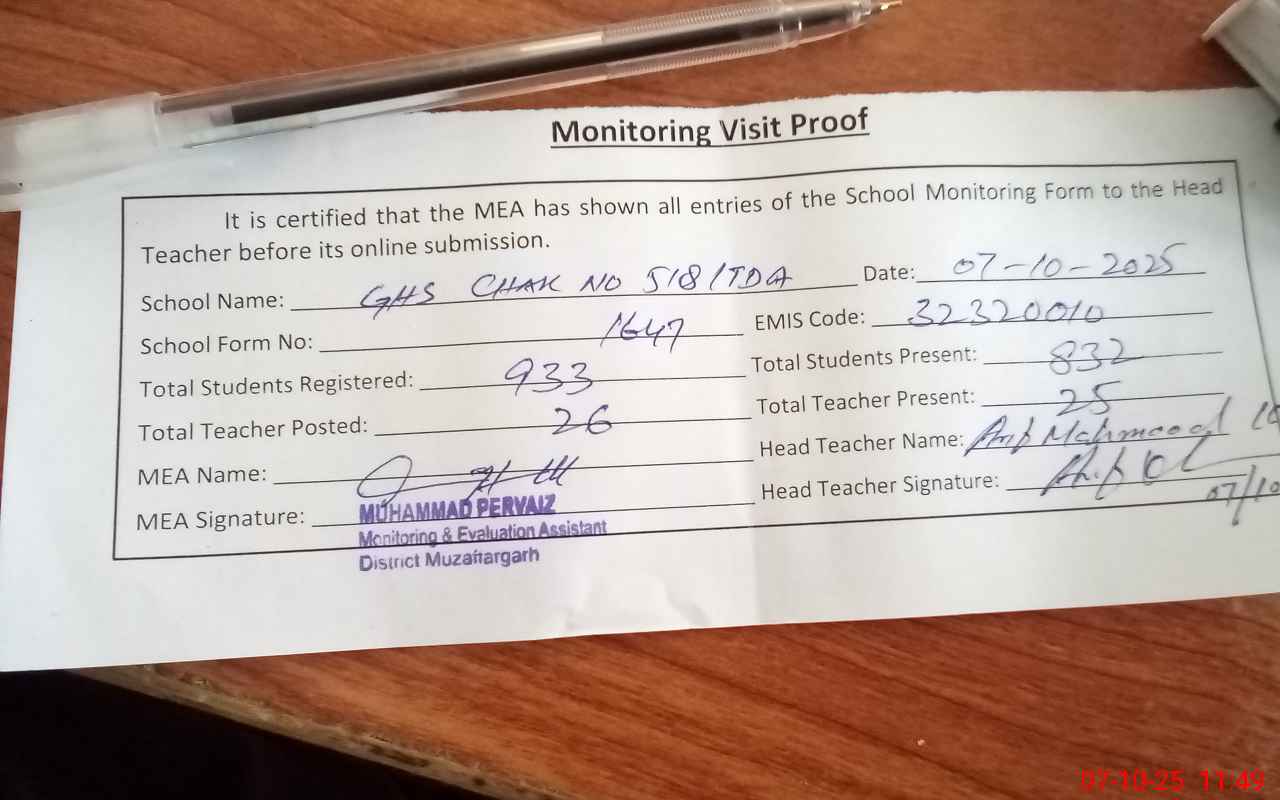 Monitoring Visit Proof
It is certified that the MEA has shown all entries of the School Monitoring Form to the Head
Teacher before its online submission.
School Name: GHS CHAK NO 518/TDA Date: 07-10-2025
School Form No: 1647 EMIS Code: 32320010
Total Students Registered: 933 Total Students Present: 832
Total Teacher Posted: 26 Total Teacher Present: 25
MEA Name: Head Teacher Name: Arif Mahmood
MEA Signature: Head Teacher Signature:
07/10
MUHAMMAD PERVAIZ
Monitoring & Evaluation Assistant
District Muzaffargarh
07-10-25 11:49